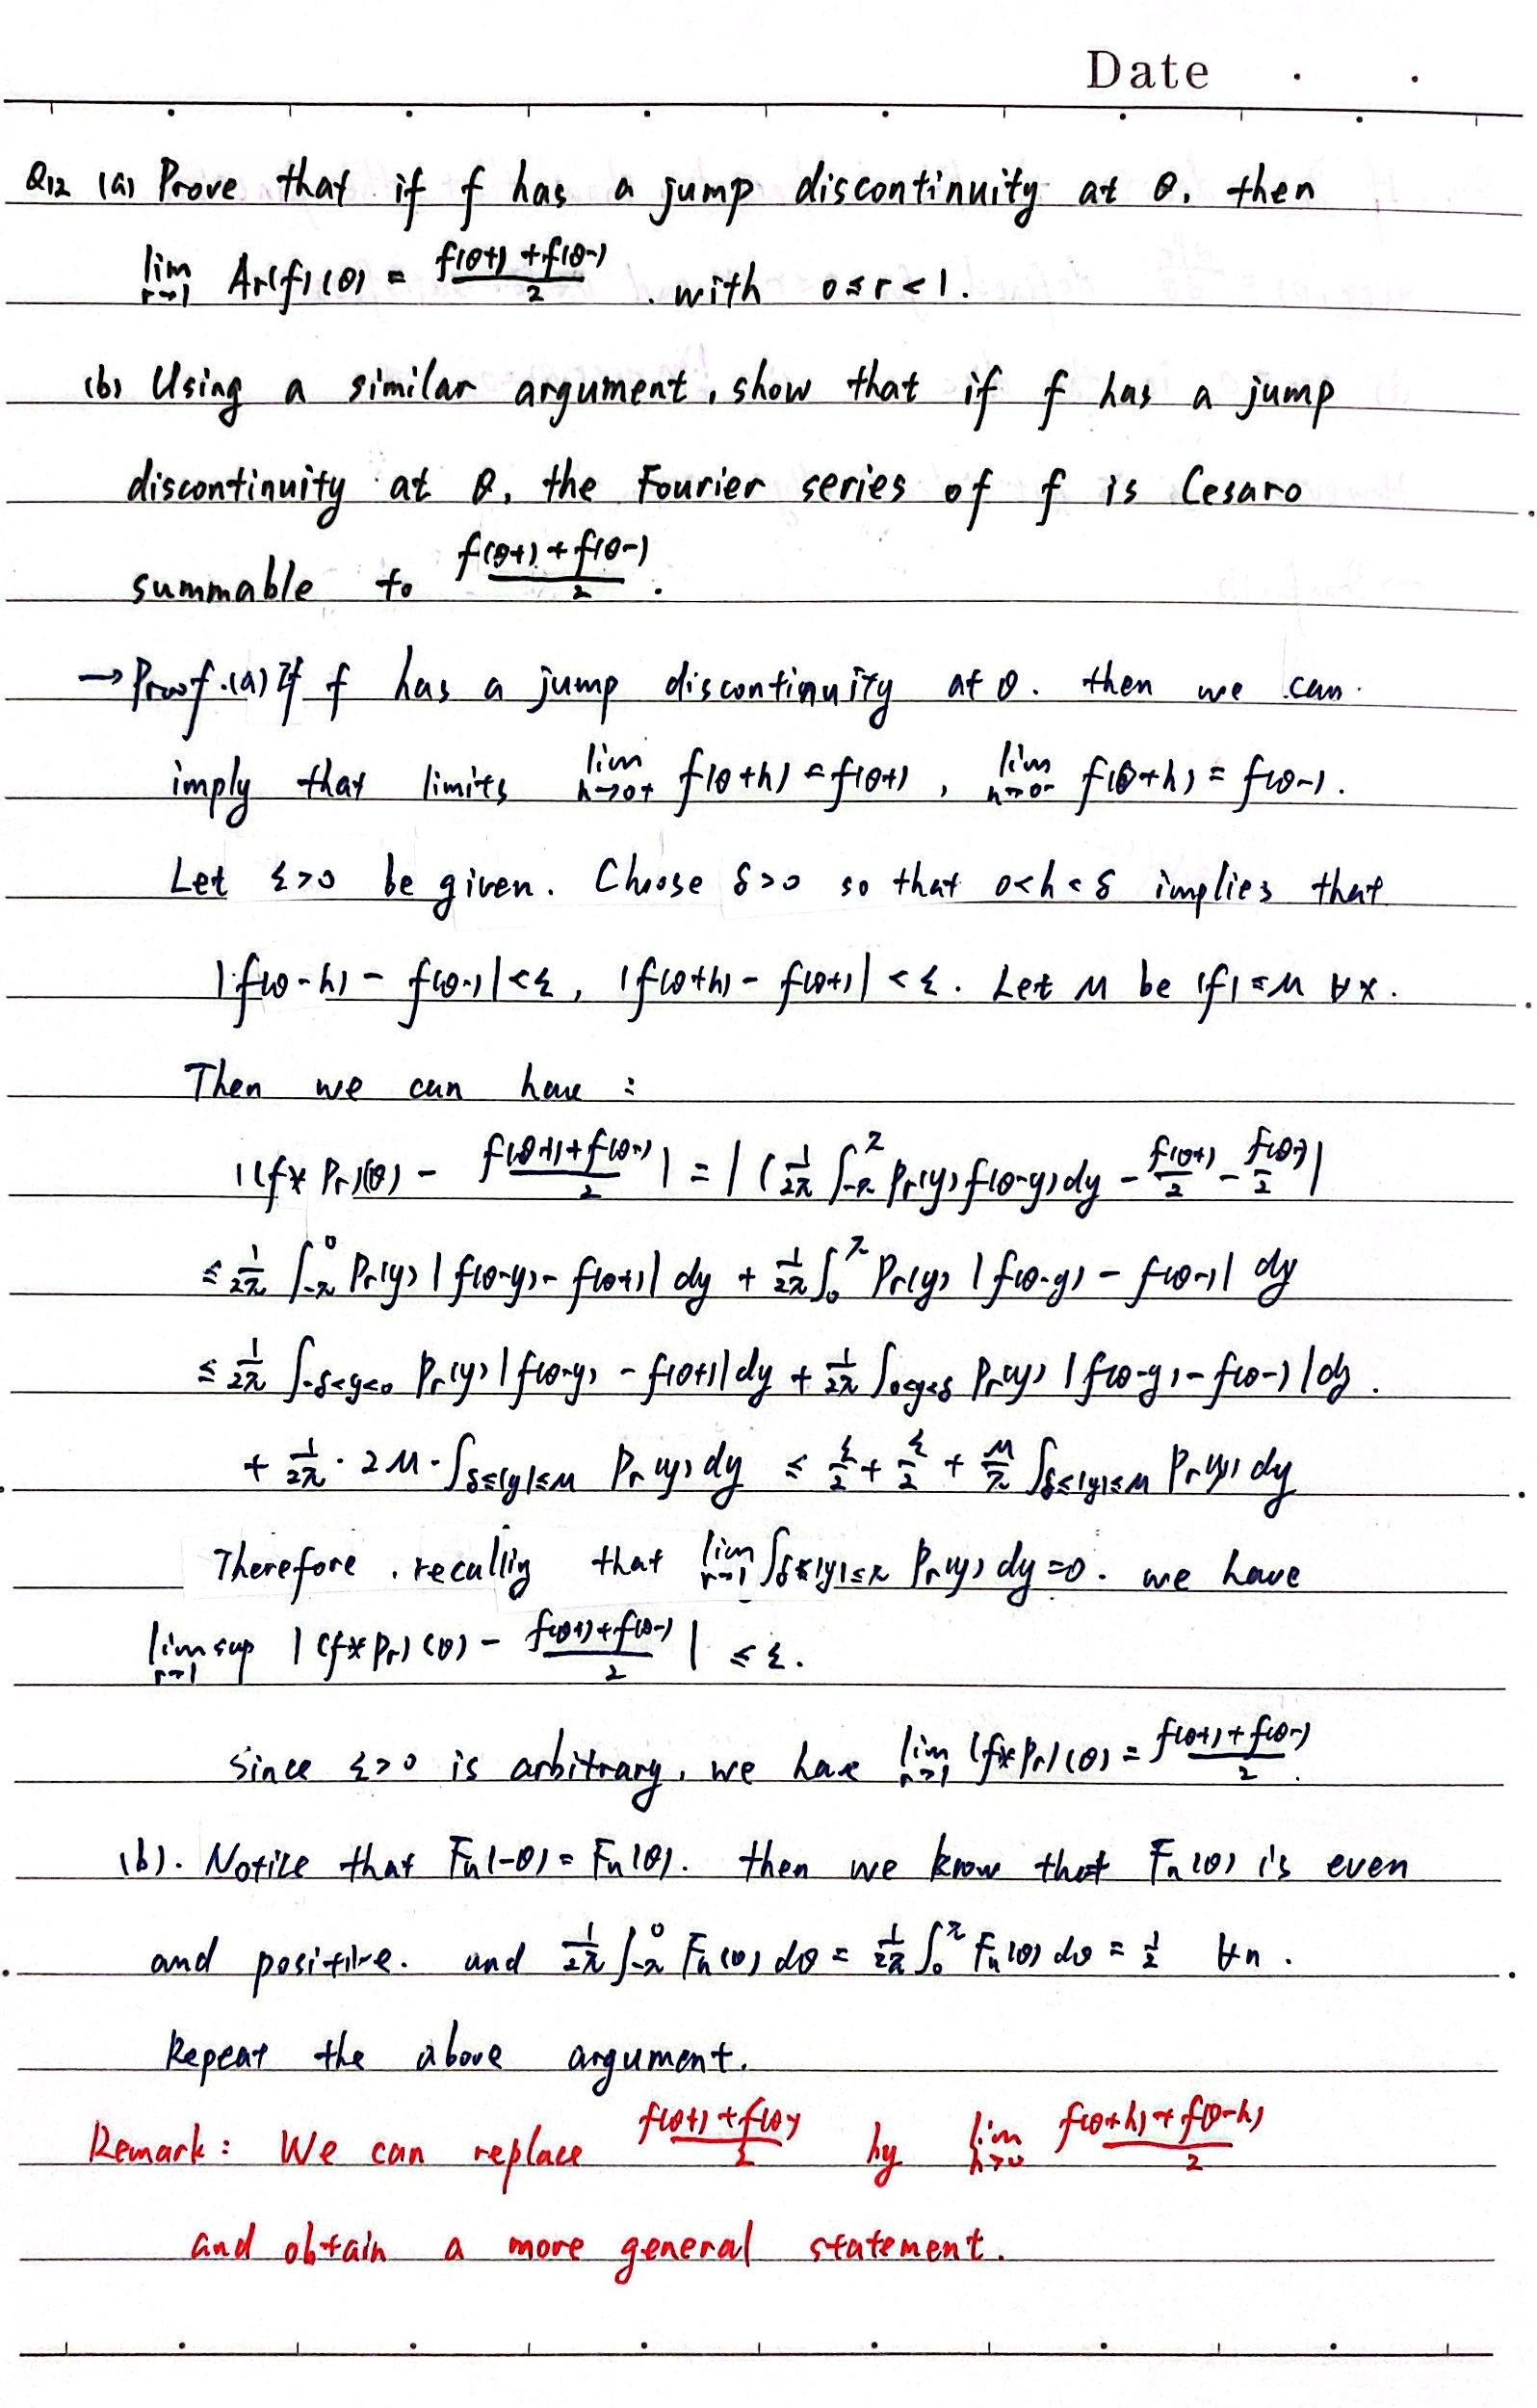 Date
Q12 (a) Prove that if f has a jump discontinuity at θ, then
lim_{r→1} Ar(f)(θ) = (f(θ+) + f(θ-))/2 . with 0 ≤ r < 1.
(b) Using a similar argument, show that if f has a jump
discontinuity at θ, the Fourier series of f is Cesaro
summable to (f(θ+) + f(θ-))/2 .
→ Proof. (a) If f has a jump discontinuity at θ. then we can
imply that limits lim_{h→0+} f(θ+h) = f(θ+) , lim_{h→0-} f(θ+h) = f(θ-).
Let ε>0 be given. Choose δ>0 so that 0<h<δ implies that
|f(θ-h) - f(θ-)| < ε, |f(θ+h) - f(θ+)| < ε. Let M be |f| ≤ M ∀x.
Then we can have :
|(f* Pr)(θ) - (f(θ+)+f(θ-))/2 | = | (1/2π ∫_{-π}^{π} Pr(y) f(θ-y) dy - f(θ+)/2 - f(θ-)/2 |
≤ 1/2π ∫_{-π}^{0} Pr(y) | f(θ-y) - f(θ+)| dy + 1/2π ∫_{0}^{π} Pr(y) | f(θ-y) - f(θ-)| dy
≤ 1/2π ∫_{-δ<y<0} Pr(y) | f(θ-y) - f(θ+)| dy + 1/2π ∫_{0<y<δ} Pr(y) | f(θ-y) - f(θ-) | dy.
+ 1/2π · 2M · ∫_{δ≤|y|≤M} Pr(y) dy ≤ ε/2 + ε/2 + M/π ∫_{δ≤|y|≤M} Pr(y) dy
Therefore , recallig that lim_{r→1} ∫_{δ≤|y|≤π} Pr(y) dy = 0. we have
lim sup_{r→1} | (f* Pr) (θ) - (f(θ+)+f(θ-))/2 | ≤ ε.
Since ε>0 is arbitrary, we have lim_{r→1} (f* Pr) (θ) = (f(θ+) + f(θ-))/2 .
(b). Notice that Fn(-θ) = Fn(θ). then we know that Fn(θ) is even
and positive. and 1/2π ∫_{-π}^{0} Fn(θ) dθ = 1/2π ∫_{0}^{π} Fn(θ) dθ = 1/2 ∀n .
Repeat the above argument.
Remark : We can replace (f(θ+) + f(θ-))/2 by lim_{h→0} (f(θ+h) + f(θ-h))/2
and obtain a more general statement.